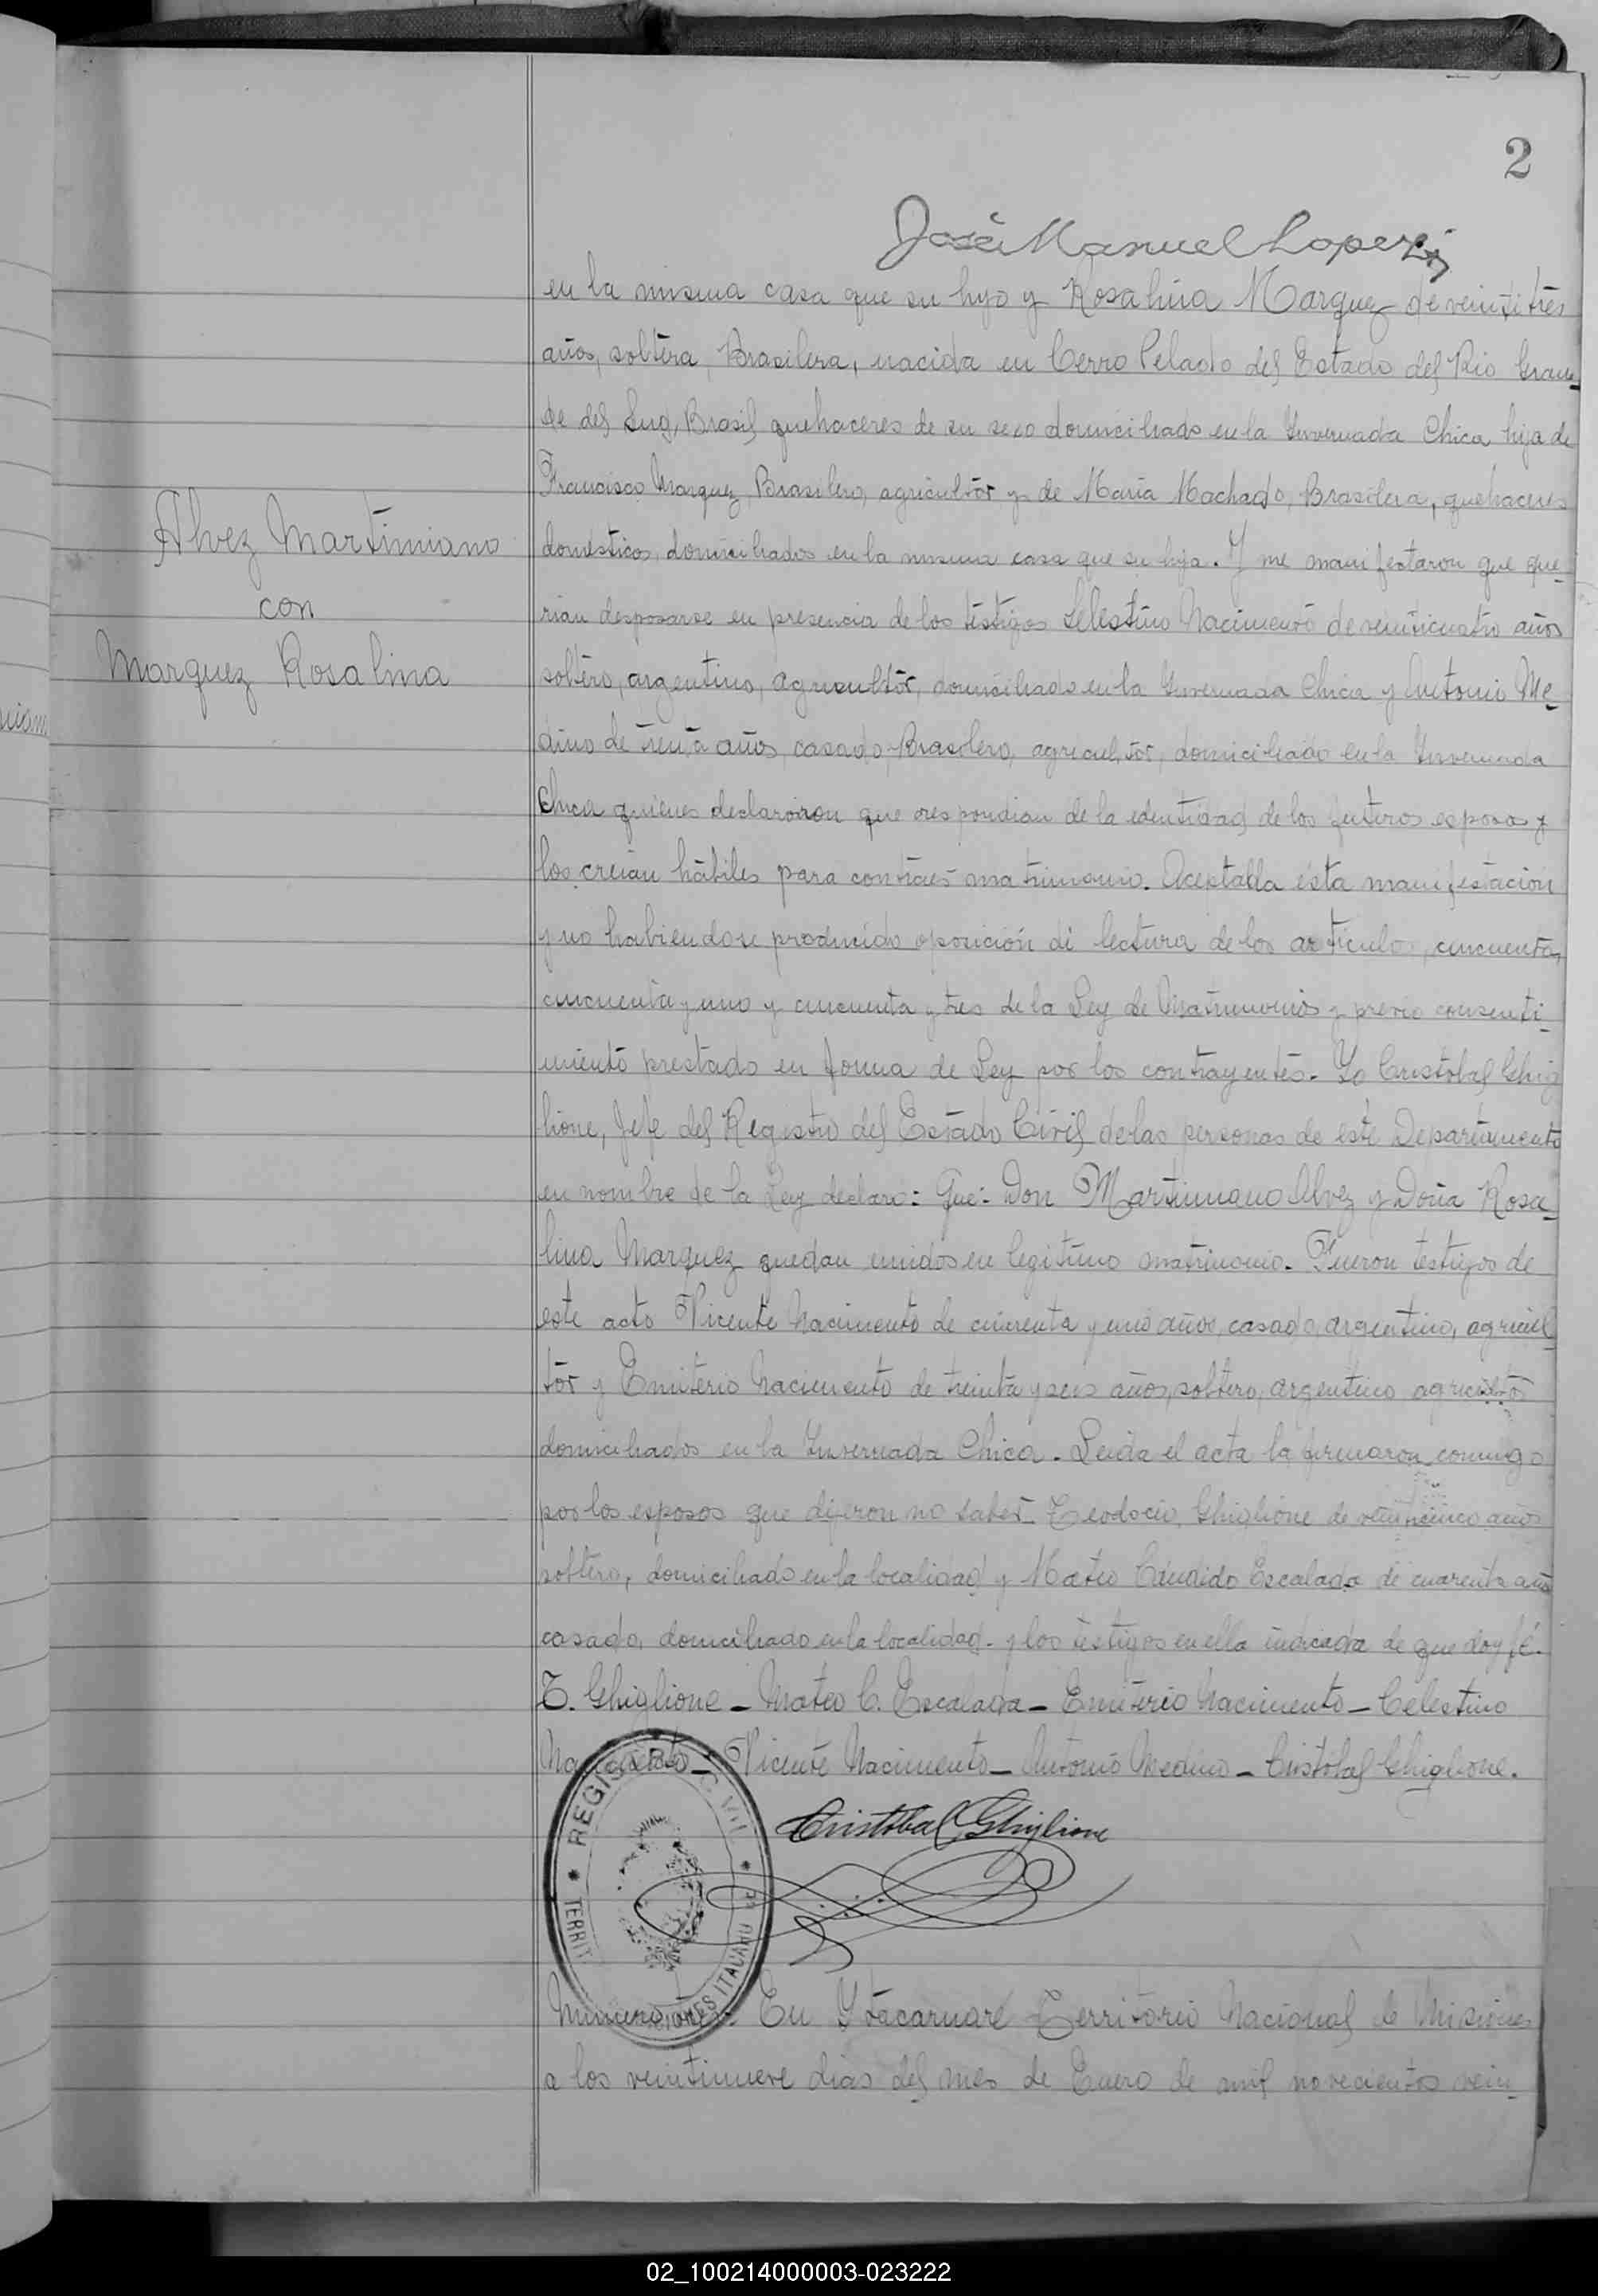 2
José Manuel Lopez
en la misma casa que su hijo y Rosalina Marquez de veintitrés
años, soltera, Brasilera, nacida en Cerro Pelado del Estado del Rio Gran
de del Sug, Brasil quehaceres de su sexo domiciliado en la Invernada Chica hija de
Francisco Marquez, Brasilero, agricultor y de María Machado, Brasilera, quehaceres
domésticos, domiciliados en la misma casa que su hija. Y me manifestaron que que-
rian desposarse en presencia de los testigos Selestino Nacimento de veinticuatro años
soltero, argentino, agricultor, domiciliado en la Invernada Chica y Antonio Me-
dino de treinta años casado, Brasilero, agricultor, domiciliado en la Invernada
Chica quienes declararon que respondian de la identidad de los futuros esposos y
los creian hábiles para contraer matrimonio. Aceptada ésta manifestación
y no habiendose producido oposición di lectura de los artículos, cincuenta,
cincuenta y uno y cincuenta y tres de la Ley de Matrimonio y previo consenti-
miento prestado en forma de Ley por los contrayentes. Yo Cristobal Ghig
lione, Jefe del Registro del Estado Civil de las personas de este Departamento
en nombre de la Ley declaro: Que: Don Martimiano Alvez y Doña Rosa-
lina Marquez quedan unidos en legitimo matrimonio. Fueron testigos de
este acto Vicente Nacimento de cuarenta y uno años, casado, argentino, agricul
tor y Emiterio Nacimento de treinta y seis años, soltero, argentino agricultor
domiciliados en la Invernada Chica. Leida el acta la firmaron conmigo
por los esposos que dijeron no saber Teodocio Ghiglione de veinticinco años
soltero, domiciliado en la localidad y Mateo Cándido Escalada de cuarenta años
casado, domiciliado en la localidad - y los testigos en ella indicada de que doy fé.
T. Ghiglione - Mateo C. Escalada - Emiterio Nacimento - Celestino
Nacimento - Vicente Nacimento - Antonio Medino - Cristobal Ghiglione.
Cristobal Ghiglione
REGISTRO CIVIL
TERRIT MISIONES ITACARU
Alvez Martimiano
con
Marquez Rosalina
Numero tres: En Ytacaruaré Territorio Nacional de Misiones
a los veintinueve dias del mes de Enero de mil novecientos vein-
02_100214000003-023222